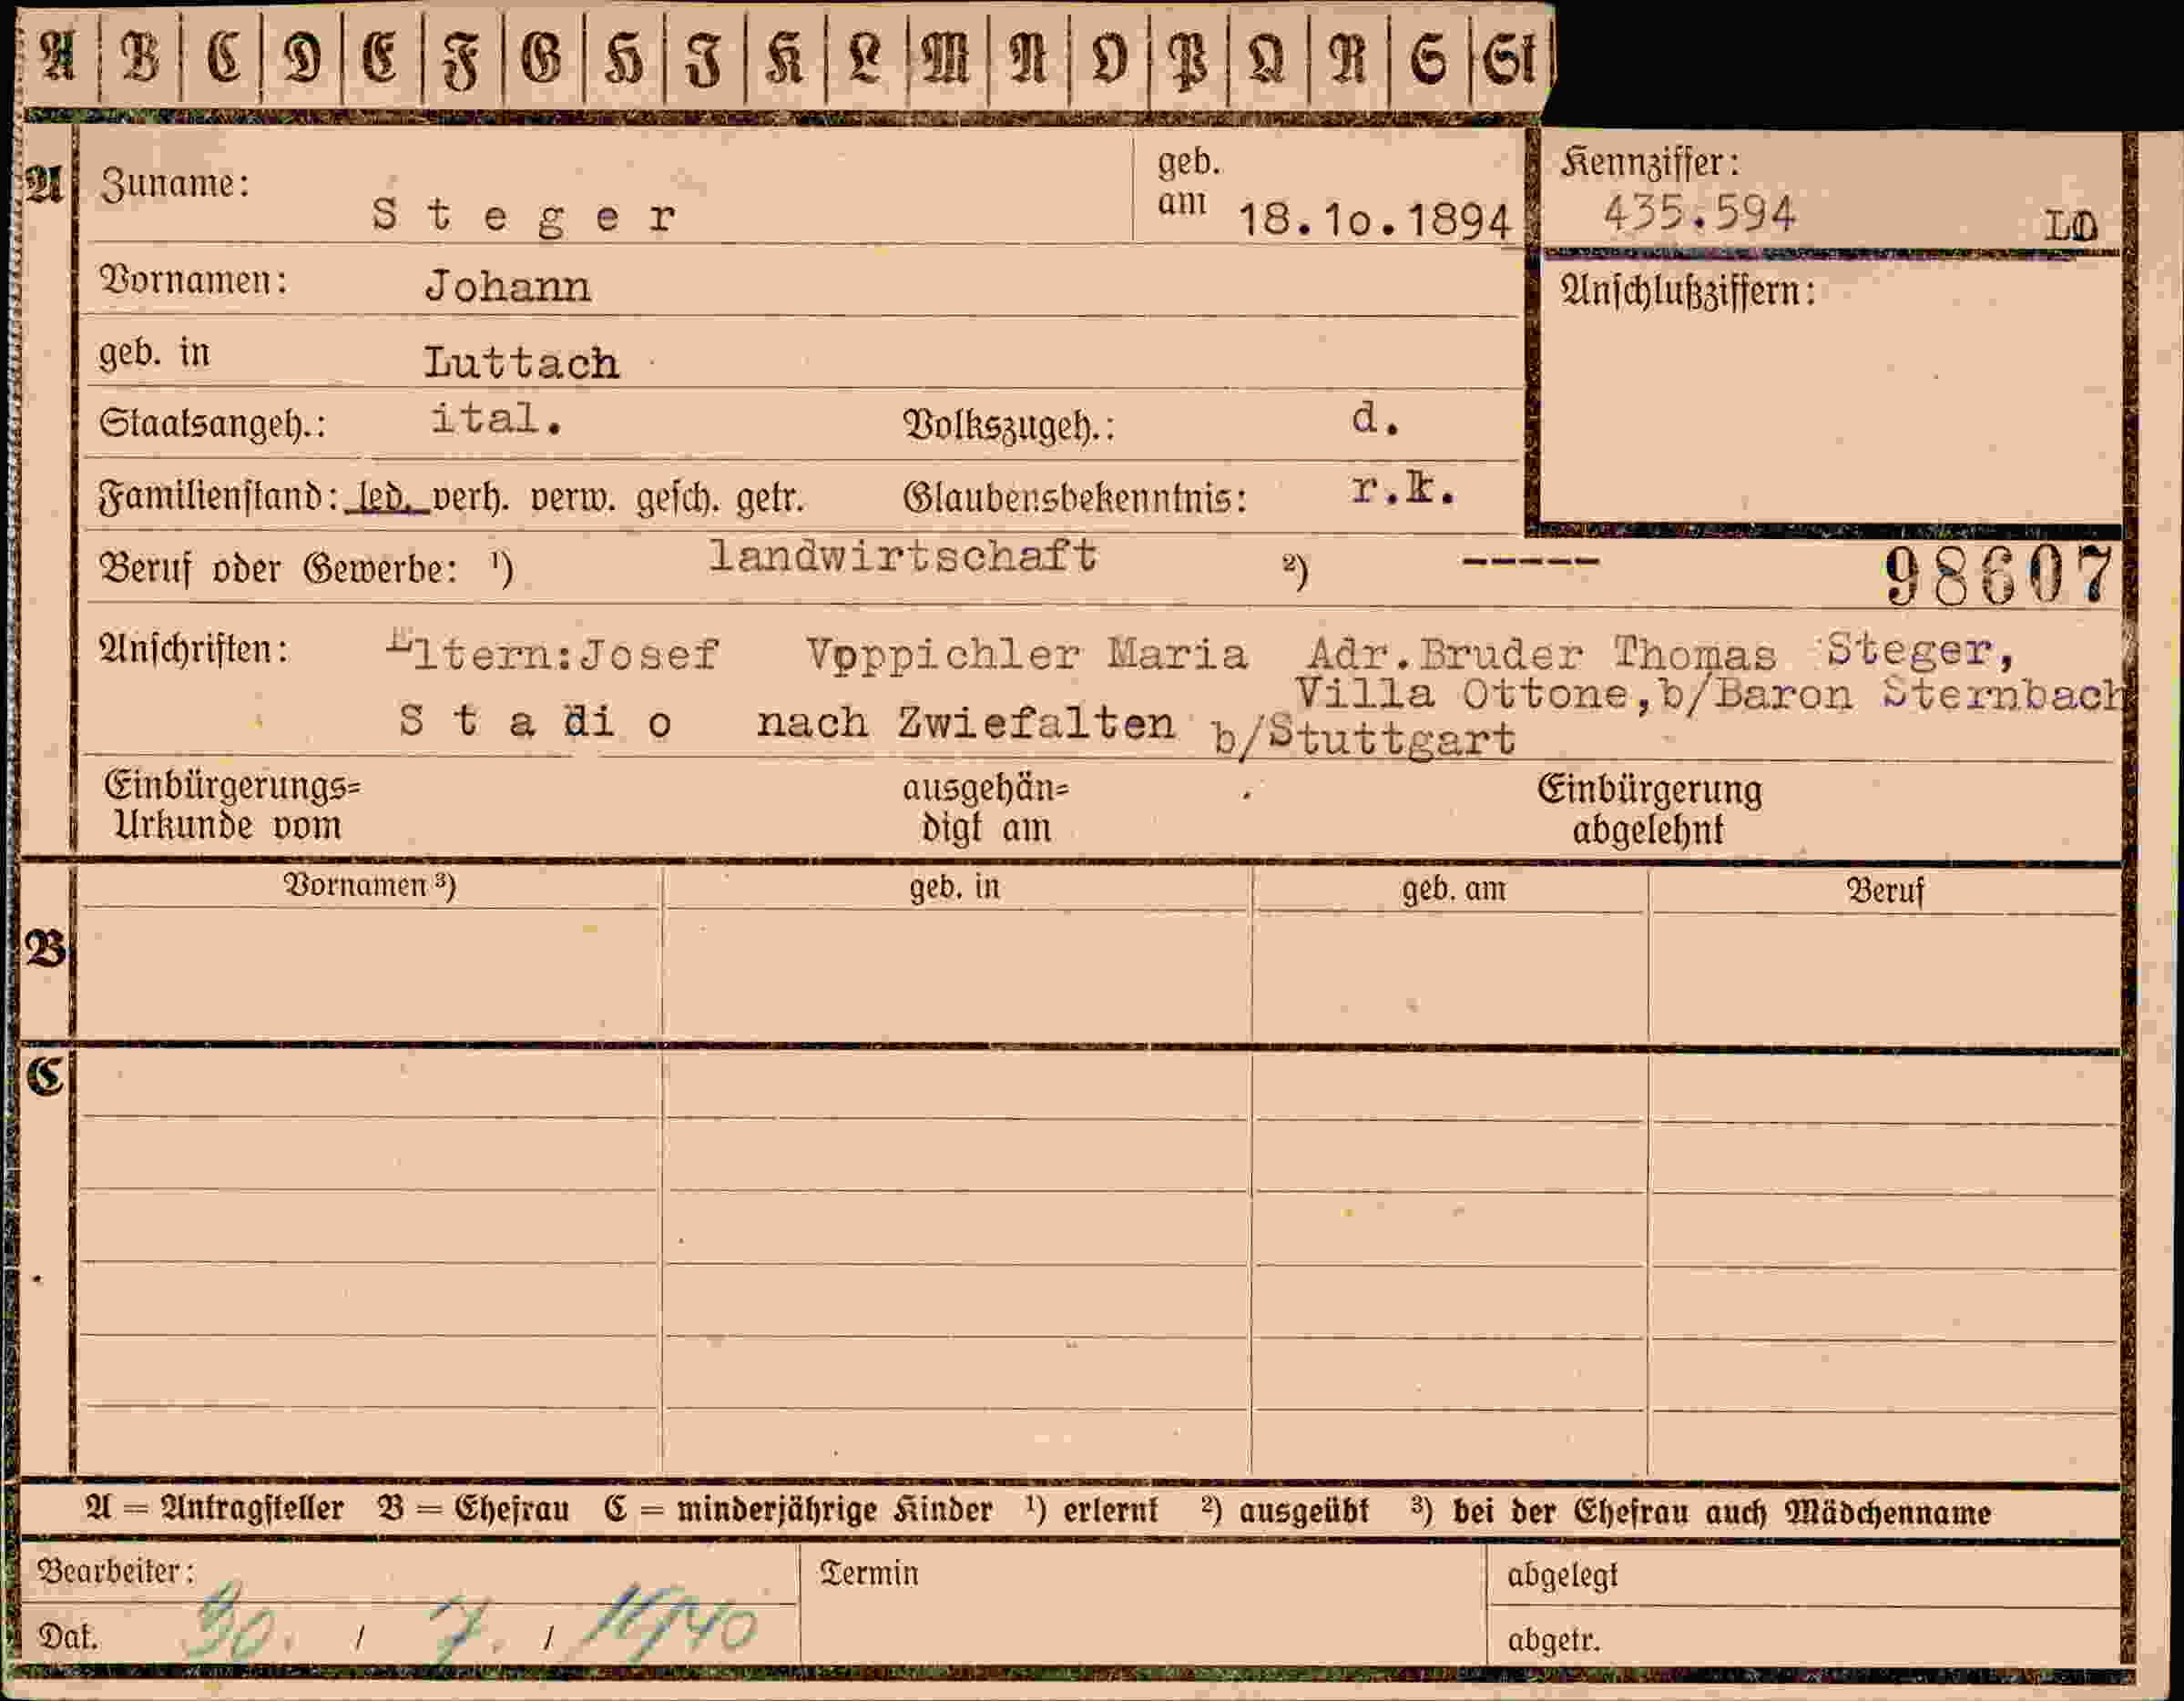 A B C D E F G H J K L M N O P Q R S St
A Zuname: Steger geb. am 18.1o.1894 Kennziffer: 435.594 LD
Vornamen: Johann Anschlußziffern:
geb. in Luttach
Staatsangeh.: ital. Volkszugeh.: d.
Familienstand: led. verh. verw. gesch. getr. Glaubensbekenntnis: r.k.
Beruf oder Gewerbe: ¹) landwirtschaft ²) ----- 98607
Anschriften: Eltern:Josef Vppppichler Maria Adr.Bruder Thomas Steger,
Villa Ottone,b/Baron Sternbach
Stadio nach Zwiefalten b/Stuttgart
Einbürgerungs= ausgehän= Einbürgerung
Urkunde vom digt am abgelehnt
Vornamen ³) geb. in geb. am Beruf
B
C
A = Antragsteller B = Ehefrau C = minderjährige Kinder ¹) erlernt ²) ausgeübt ³) bei der Ehefrau auch Mädchenname
Bearbeiter: Termin abgelegt
Dat. 30. / 7. / 1940 abgetr.